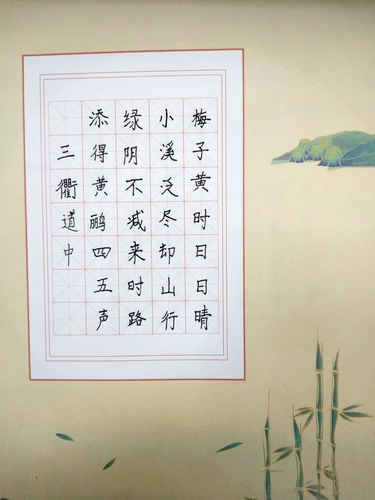 梅子黄时日日晴
小溪泛尽却山行
绿阴不减来时路
添得黄鹂四五声
三衢道中